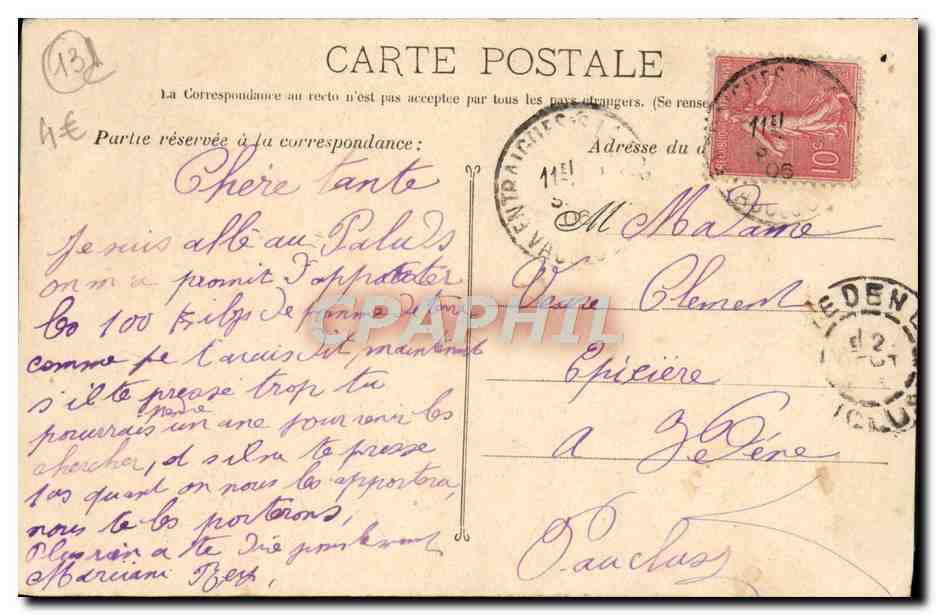 13
4€
CARTE POSTALE
La Correspondance au recto n'est pas acceptée par tous les pays étrangers. (Se rense
Partie réservée à la correspondance:
Adresse du d
ENTRAIGUES-S
11E
06
VAUCLUSE
10c
Chère tante
Je suis allé au Paluds
on m'a promit d'apporter
les 100 Kilogs de pomme de terre
comme je t'avais dit, maintenant
s'il te presse trop tu
pourrais prendre un ane pour venir les
chercher, et s'il ne te presse
pas quant on nous les apportera,
nous te les porterons,
Plus rien a te dire pour le moment
Marciani Rey,
M Madame
Veuve Clement
Epicière
a Vedène
Vaucluse
VEDENE
CPAPHIL